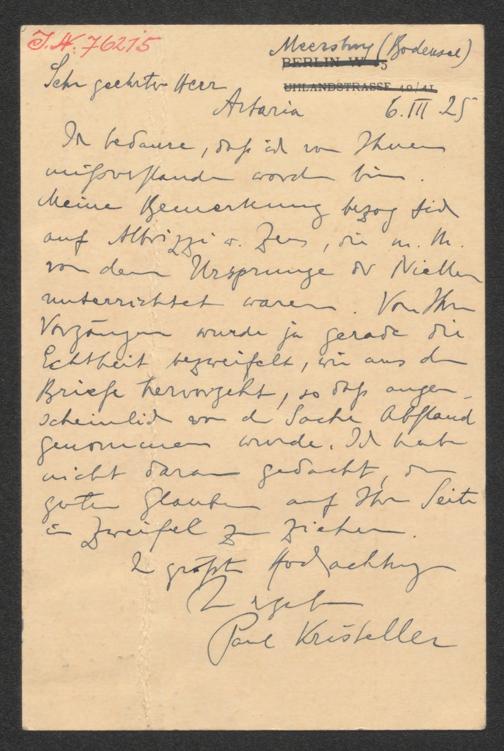 I.N. 76215
Meersburg (Bodensee)
BERLIN W 15
UHLANDSTRASSE 40/41
Sehr geehrter Herr
Artaria 6. III 25
Ich bedaure, daß ich von Ihnen
mißverstanden worden bin.
Meine Bemerkung bezog sich
auf Albrizzi u. Zeno, die m. M.
von dem Ursprunge der Niellen
unterrichtet waren. Von Ihren
Vorgängern wurde ja gerade die
Echtheit bezweifelt, wie aus dem
Briefe hervorgeht, so daß augen-
scheinlich von der Sache Abstand
genommen wurde. Ich habe
nicht daran gedacht, den
guten Glauben auf Ihrer Seite
in Zweifel zu ziehen.
In größter Hochachtung
Ihr ergebener
Paul Kristeller